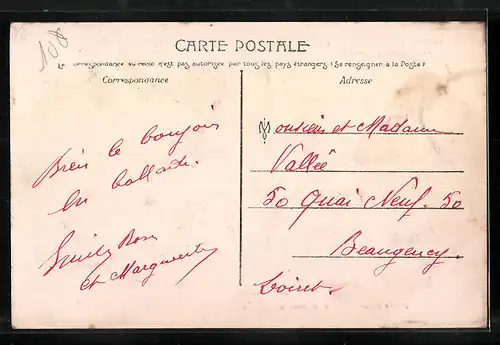 108
CARTE POSTALE
La correspondance au recto n'est pas autorisée par tous les pays étrangers (Se renseigner à la Poste)
Correspondance
Adresse
Bien le bonjour
en ballade.
Emile Rose
et Marguerite
Monsieur et Madame
Vallée
50 Quai Neuf. 50
Beaugency
Loiret